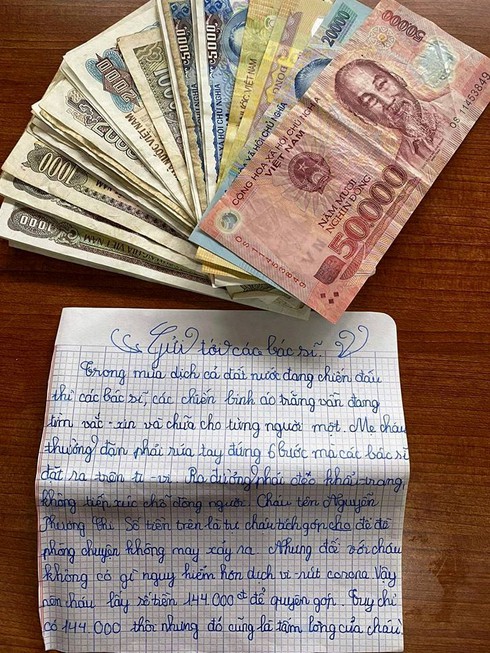 2000
5000
5000
20000
50000
OS 11453849
CỘNG HÒA XÃ HỘI CHỦ NGHĨA
VIỆT NAM
NĂM MƯƠI
NGHÌN ĐỒNG
50.000
OS 11453849
1000
1000
Gửi tới các bác sĩ
Trong mùa dịch cả đất nước đang chiến đấu
thì các bác sĩ, các chiến binh áo trắng vẫn đang
tìm vắc-xin và chữa cho từng người một. Mẹ cháu
thường dặn phải rửa tay đúng 6 bước mà các bác sĩ
đặt ra trên ti-vi. Ra đường phải đeo khẩu-trang
không tiếp xúc chỗ đông người. Cháu tên Nguyễn
Phương Chi. Số tiền trên là tự cháu tích góp cho đỏ để
phòng chuyện không may xảy ra. Nhưng đối với cháu
không có gì nguy hiểm hơn dịch vi-rút corona. Vậy
nên cháu lấy số tiền 144.000đ để quyên góp. Tuy chỉ
có 144.000 thôi nhưng đó cũng là tấm lòng của cháu.